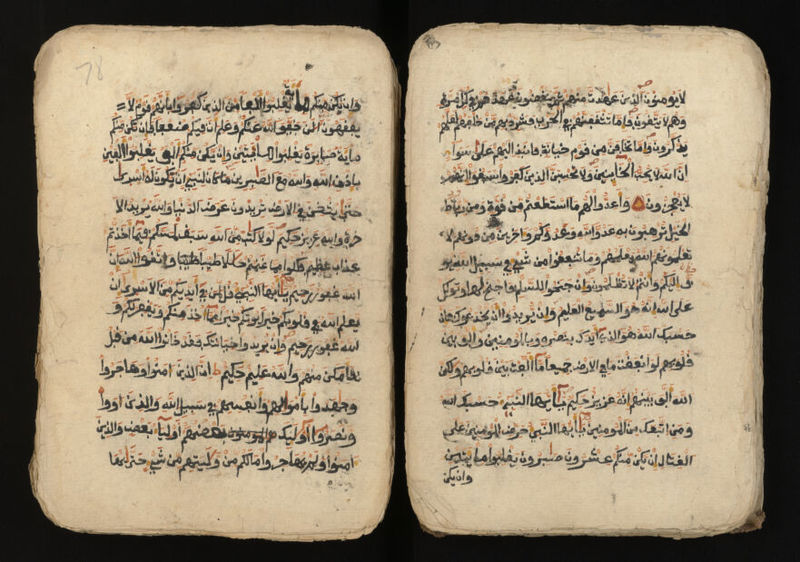 لا يومنون الذين عهدت منهم ثم ينقضون عهدهم في كل مرة
وهم لا يتقون فاما تثقفنهم في الحرب فشرد بهم من خلفهم لعلهم
يذكرون واما تخافن من قوم خيانة فانبذ اليهم على سواء
ان الله لا يحب الخاينين ولا تحسبن الذين كفروا سبقوا انهم
لا يعجزون واعدوا لهم ما استطعتم من قوة ومن رباط
الخيل ترهبون به عدو الله وعدوكم واخرين من دونهم لا
تعلمونهم الله يعلمهم وما تنفقوا من شيء في سبيل الله يو
ف اليكم وانتم لا تظلمون وان جنحوا للسلم فاجنح لها وتوكل
على الله انه هو السميع العليم وان يريدوا ان يخدعوك فان
حسبك الله هو الذي ايدك بنصره وبالمومنين والف بين
قلوبهم لو انفقت ما في الارض جميعا ما الفت بين قلوبهم ولكن
الله الف بينهم انه عزيز حكيم يايها النبي حسبك الله
ومن اتبعك من المومنين يايها النبي حرض المومنين على
القتال ان يكن منكم عشرون صبرون يغلبوا مايتين
وان يكن
78
وان يكن منكم ماية يغلبوا الفا من الذين كفروا بانهم قوم لا
يفقهون الن خفف الله عنكم وعلم ان فيكم ضعفا فان تكن منكم
ماية صابرة يغلبوا مايتين وان يكن منكم الف يغلبوا الفين
باذن الله والله مع الصبرين ما كان لنبي ان يكون له اسرى
حتى يثخن في الارض تريدون عرض الدنيا والله يريد الا
خرة والله عزيز حكيم لولا كتب من الله سبق لمسكم فيما اخذتم
عذاب عظيم فكلوا مما غنمتم حللا طيبا واتقوا الله ان
الله غفور رحيم يايها النبي قل لمن في ايديكم من الاسرى ان
يعلم الله في قلوبكم خيرا يوتكم خيرا مما اخذ منكم ويغفر لكم و
الله غفور رحيم وان يريدوا خيانتك فقد خانوا الله من قبل
فامكن منهم والله عليم حكيم ان الذين امنوا وهاجروا
وجهدوا باموالهم وانفسهم في سبيل الله والذين اووا
ونصروا اوليك بعضهم اوليا بعض والذين
امنوا ولم يهاجروا ما لكم من وليتهم من شيء حتى يها